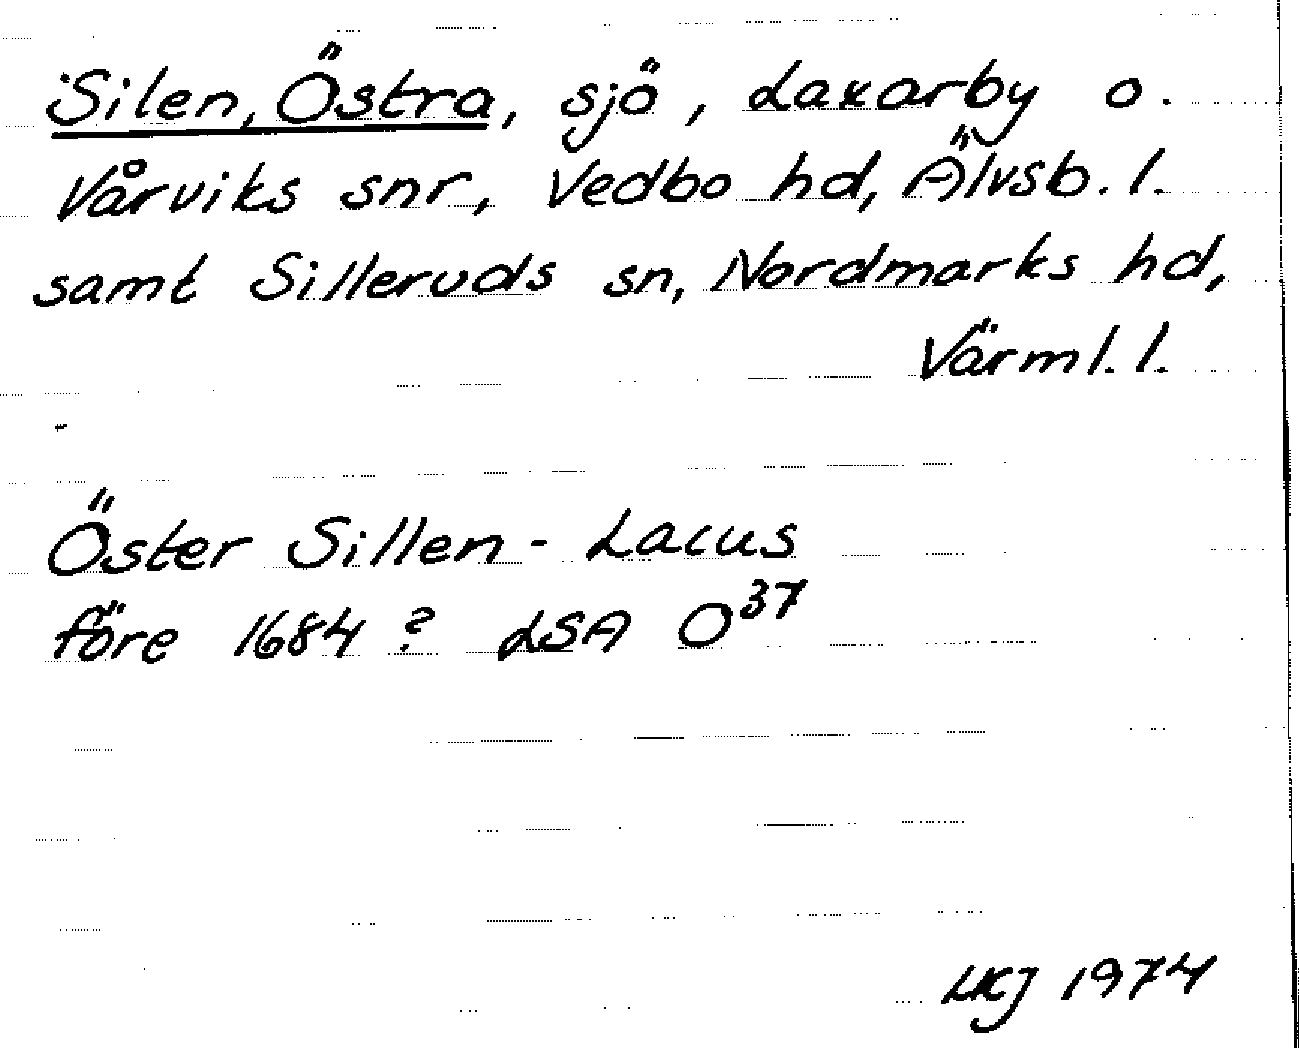 Silen, Östra, sjö, Laxarby o.
Vårviks snr, Vedbo hd, Älvsb. l.
samt Silleruds sn, Nordmarks hd,
Värml. l.
Öster Sillen - Lacus
före 1684? LSA O37
LKJ 1974